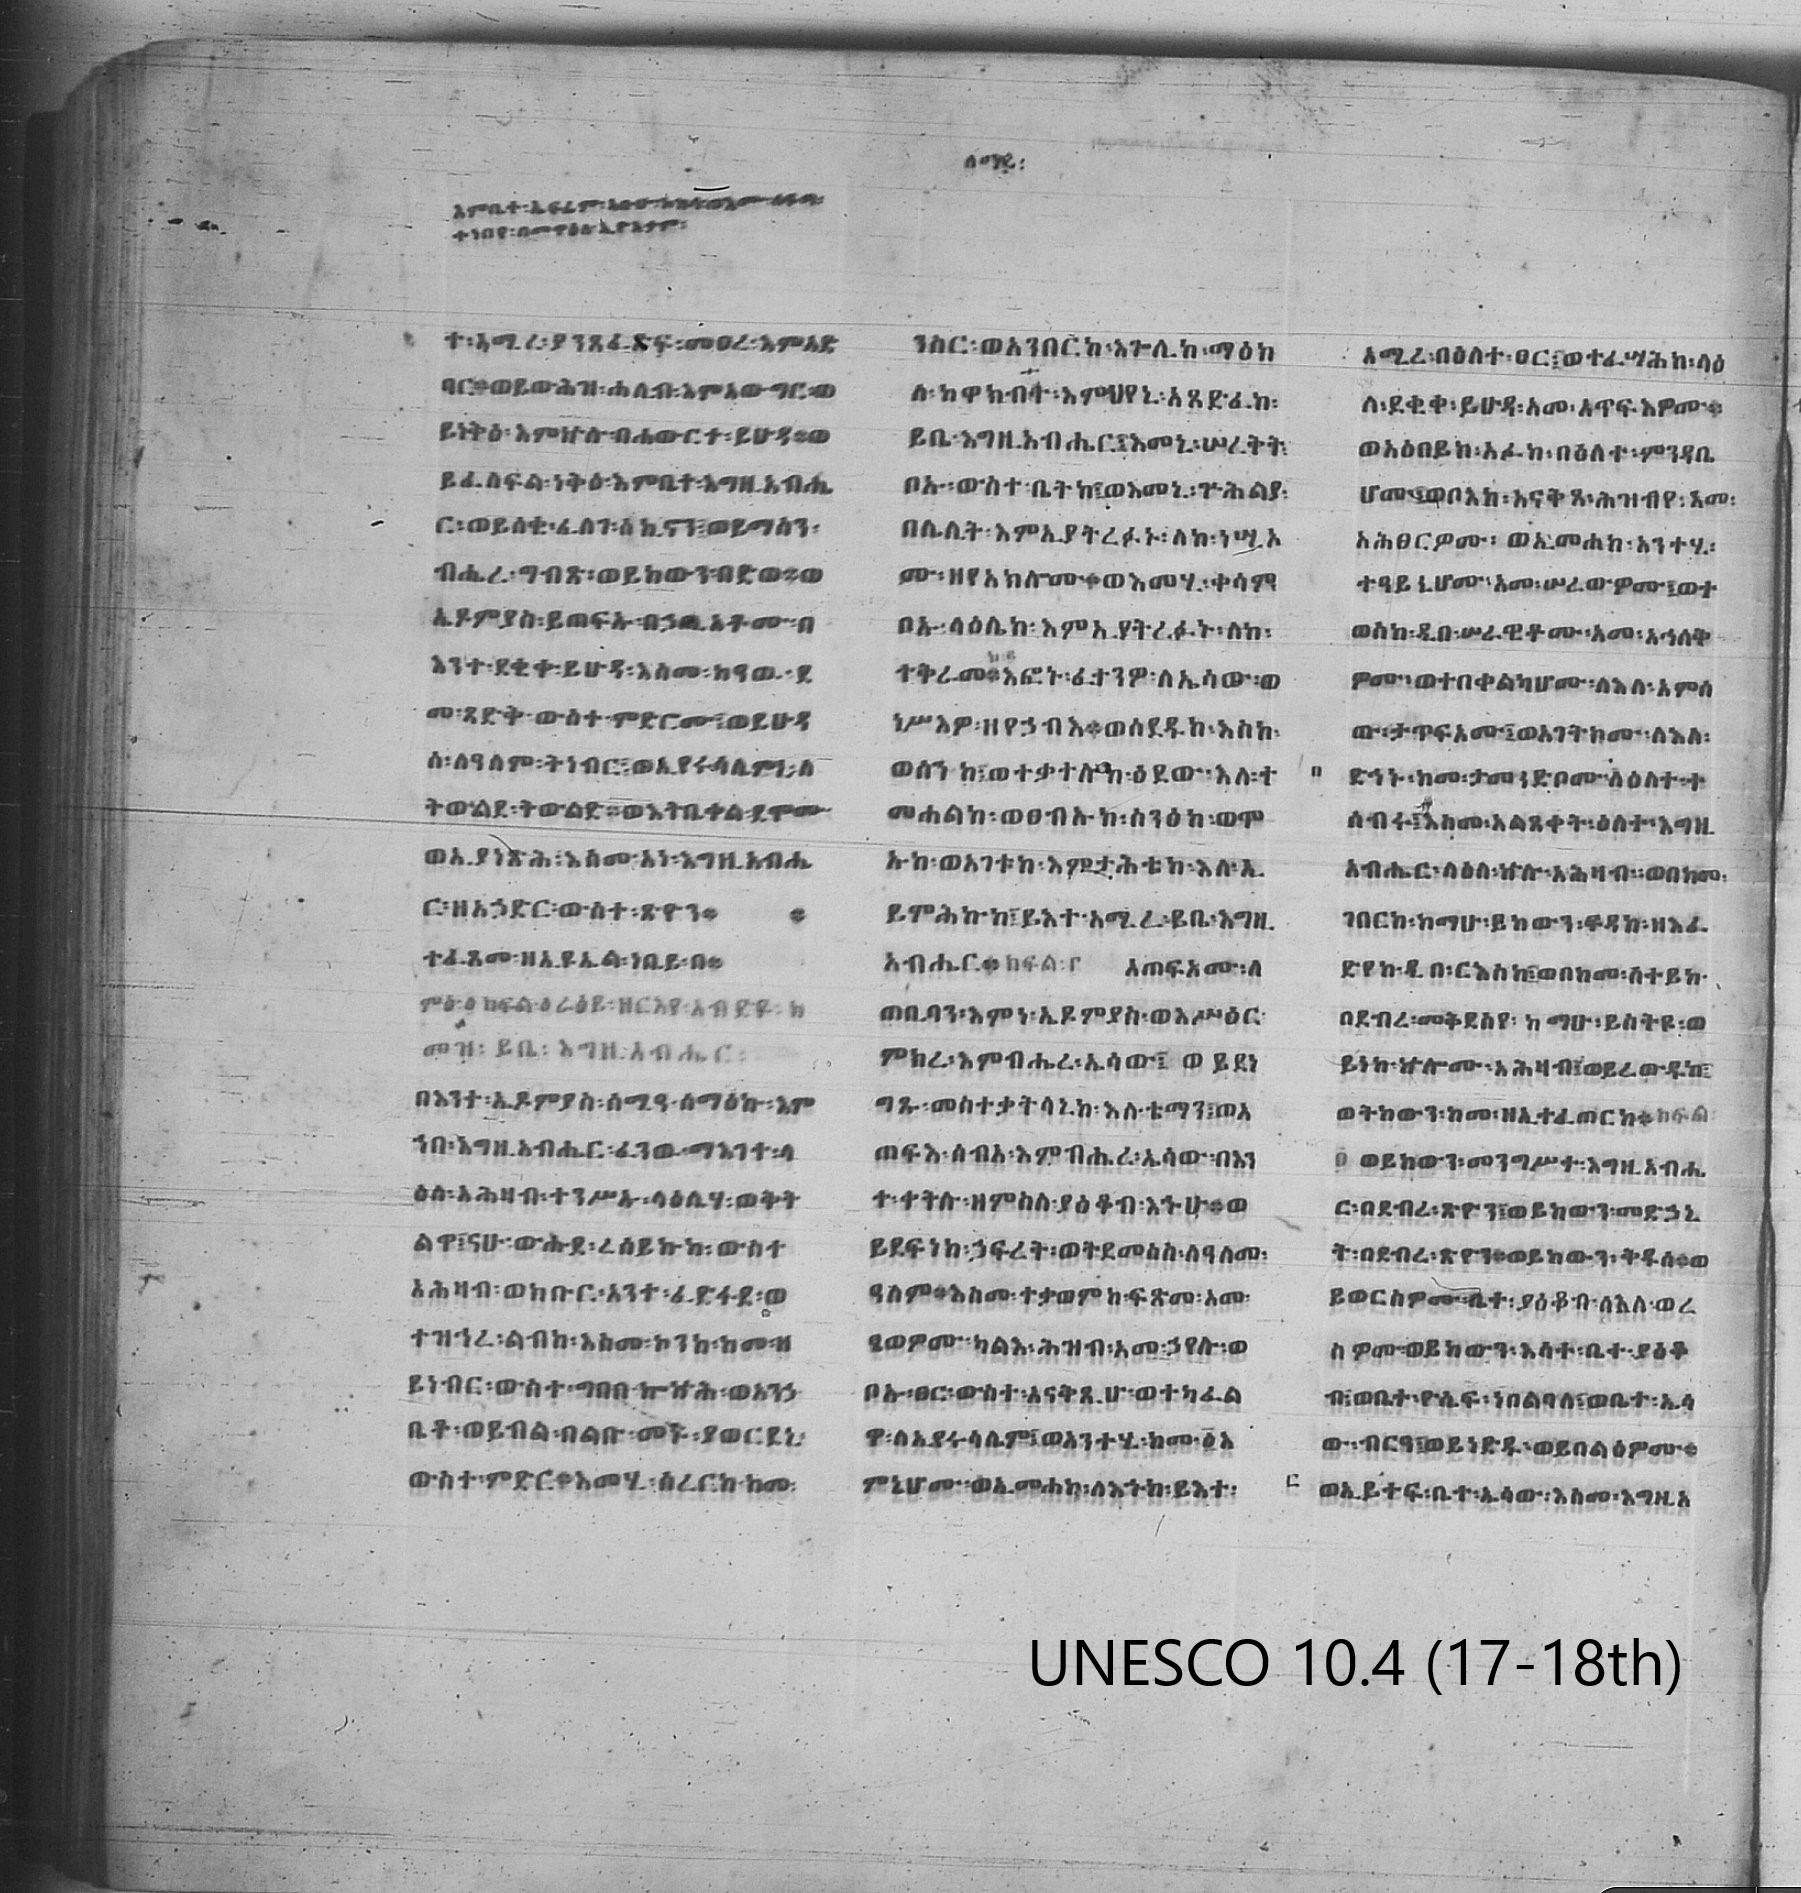 ተ፡አሚረ፡ያንጸፈጽፍ፡መዐረ፡እምአድ
ባር፡፡ወይውሕዝ፡ሐሊብ፡እምአውግር፡ወ
ይነቅዕ፡እምኵሉ፡ብሐውርተ፡ይሁዳ፡፡ወ
ይፈለፍል፡ነቅዕ፡እምቤተ፡እግዚአብሔ
ር፡ወይሰቂ፡ፈለገ፡ሰኪኖን፤ወይማስን፡
ብሔረ፡ግብጽ፡ወይከውን፡ብድወ፡፡ወ
ኤዶምያስ፡ይጠፍኡ፡በኃጢአቶሙ፡በ
እንተ፡ደቂቀ፡ይሁዳ፡እስመ፡ከዓው፡ደ
መ፡ጻድቅ፡ውስተ፡ምድሮሙ፤ወይሁዳ
ሰ፡ለዓለም፡ትነብር፤ወኢየሩሳሌምኒ፡ለ
ትውልደ፡ትውልድ፡፡ወእትቤቀል፡ደሞሙ
ወኢያነጽሕ፤እስመ፡አነ፡እግዚአብሔ
ር፡ዘአኃድር፡ውስተ፡ጽዮን፡፡
ተፈጸመ፡ዘኢዩኤል፡ነቢይ፡በ፡፡
ከፍል፡ዕረዕይ፡ዘርእየ፡አብድዩ፡ከ
መዝ፡ ይቤ፡ እግዚአብሔር፡
በእንተ፡ኤዶምያስ፡ሰሚዓ፡ሰማዕኩ፡እም
ኀበ፡እግዚአብሔር፡ፈነወ፡ማእገተ፡ላ
ዕለ፡አሕዛብ፡ተንሥኡ፡ላዕሌሃ፡ወቅት
ልዋ፤ናሁ፡ውሑደ፡ረሰይኩከ፡ውስተ
አሕዛብ፡ወከቡር፡አንተ፡ፈድፋደ፡ወ
ተዝኅረ፡ልብከ፡እስመ፡ኮንከ፡ከመ፡ዘ
ይነብር፡ውስተ፡ግበበ፡ኰኵሕ፡ወአንኃ
ቤቶ፡ወይብል፡በልቡ፡መኑ፡ያወርደኒ፡
ውስተ፡ምድር፡፡እመሂ፡ሰረርከ፡ከመ፡
ንስር፡ወአንበርከ፡እጕሊከ፡ማዕከ
ለ፡ከዋክብት፡እምህየኒ፡አጸድፈከ፡
ይቤ፡እግዚአብሔር፤እመኒ፡ሠረቅት፡
ቦኡ፡ውስተ፡ቤትከ፤ወእመኒ፡ጕሕልያ፡
በሌሊት፡እምኢያትረፉኑ፡ለከ፡ነሢኦ
ሙ፡ዘየአክሎሙ፡፡ወእመሂ፡ቀሳምያን
ቦኡ፡ላዕሌከ፡እምኢያትረፉት፡ለከ፡
ተቅራመ፡፡እፎኑ፡ፈተንዎ፡ለኤሳው፡ወ
ነሥእዎ፡ዘየኃብእ፡፡ወሰደዱከ፡እስከ፡
ወሰንከ፤ወተቃተሉከ፡ዕደው፡እለ፡ተ
መሐልከ፡ወፀብኡከ፡ሰንዕከ፡ወሞ
ኡከ፡ወአገቱከ፡እምታሕቴከ፡እለ፡ኢ
ይምሕኩከ፤ይእተ፡አሚረ፡ይቤ፡እግዚ
አብሔር፡፡ክፍል፡፫ አጠፍአሙ፡ለ
ጠቢባን፡እምነ፡ኤዶምያስ፡ወእሥዕር፡
ምክረ፡እምብሔረ፡ኤሳው፤ ወይደነ
ግጹ፡መስተቃትላኒከ፡እለ፡ቴማን፤ወአ
ጠፍእ፡ሰብአ፡እምብሔረ፡ኤሳው፡በእን
ተ፡ቀትሉ፡ዘምስለ፡ያዕቆብ፡እኁሁ፡፡ወ
ይደፍነከ፡ኃፍረት፡ወትደመሰስ፡ለዓለመ፡
ዓለም፡፡እስመ፡ተቃወምከ፡ፍጽመ፡አመ፡
ፄወዎሙ፡ካልእ፡ሕዝብ፡አመ፡ኃየሉ፡ወ
ቦኡ፡ፀር፡ውስተ፡አናቅጺሁ፡ወተካፈል
ዋ፡ለኢየሩሳሌም፤ወአንተሂ፡ከመ፡፩እ
ምኔሆሙ፡ወኢመሐከ፡ለእኁከ፡ይእተ፡
አሚረ፡በዕለተ፡ፀር፤ወተፈሣሕከ፡ላዕ
ለ፡ደቂቀ፡ይሁዳ፡አመ፡አጥፍእዎሙ፡፡
ወአዕበይከ፡አፉከ፡በዕለተ፡ምንዳቤ
ሆሙ፤ወቦእከ፡አናቅጸ፡ሕዝብየ፡አመ፡
አሕፀርዎሙ፡ ወኢመሐከ፡አንተሂ፡
ተዓይኒሆሙ፡አመ፡ሠረውዎሙ፤ወተ
ወስከ፡ዲበ፡ሠራዊቶሙ፡አመ፡አኅለቅ
ዎሙ፡ወተበቀልካሆሙ፡ለእለ፡አምሰ
ጡ፡ታጥፍአሙ፤ወአገትኮሙ፡ለእለ፡
ድኅኑ፡ከመ፡ታመንድቦሙ፡ለዕለተ፡ተ
ሰብሩ፤እስመ፡አልጸቀት፡ዕለተ፡እግዚ
አብሔር፡ላዕለ፡ኵሉ፡አሕዛብ፡፡ወበከመ፡
ገበርከ፡ከማሁ፡ይከውን፡ፍዳከ፡ዘእፈ
ድየከ፡ዲበ፡ርእስከ፤ወበከመ፡ሰተይከ፡
በደብረ፡መቅደስየ፡ ከማሁ፡ይሰትዩ፡ወ
ይነከ፡ኵሎሙ፡አሕዛብ፤ወይረውዱከ፤
ወትከውን፡ከመ፡ዘኢተፈጠርከ፡፡ክፍል
፬ ወይከውን፡መንግሥተ፡እግዚአብሔ
ር፡በደብረ፡ጽዮን፤ወይከውን፡መድኃኒ
ት፡በደብረ፡ጽዮን፡፡ወይከውን፡ቅዱሰ፡፡ወ
ይወርስዎሙ፡ቤተ፡ያዕቆብ፡ለእለ፡ወረ
ስዎሙ፡ወይከውን፡እሳተ፡ቤተ፡ያዕቆ
ብ፤ወቤተ፡ዮሴፍ፡ነበልባለ፤ወቤተ፡ኤሳ
ው፡ብርዓ፤ወይነድዱ፡ወይበልዕዎሙ፡፡
ወኢይተፍ፡ቤተ፡ኤሳው፡እስመ፡እግዚአ
UNESCO 10.4 (17-18th)